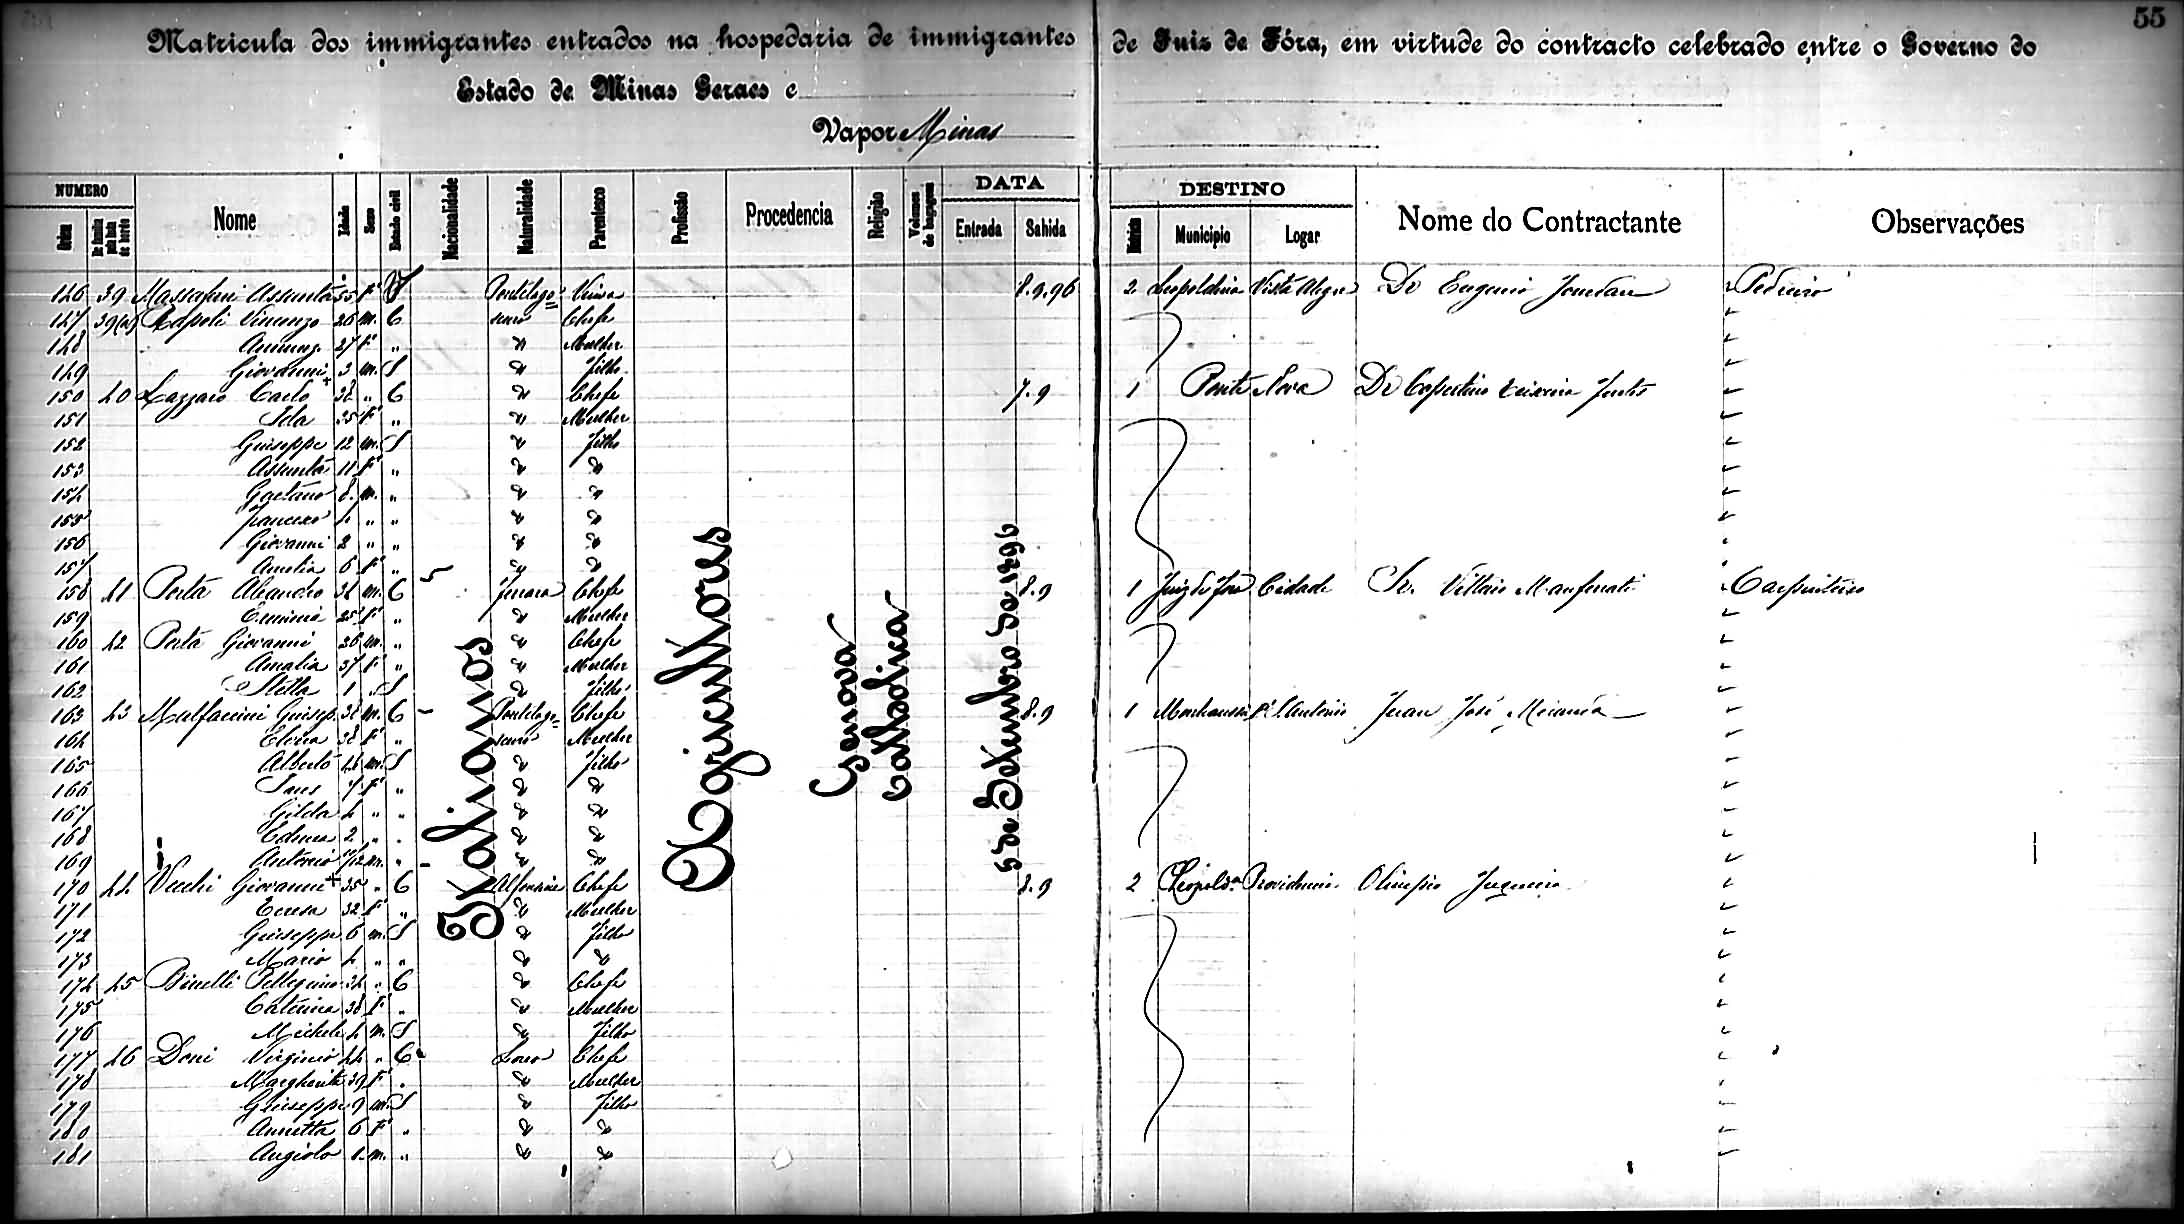 55
Matricula dos immigrantes entrados na hospedaria de immigrantes de Juiz de Fóra, em virtude do contracto celebrado entre o Governo do
Estado de Minas Geraes e
Vapor Minas
NUMERO DATA DESTINO
Ordem Nome Idade Sexo Estado civil Nacionalidade Naturalidade Parentesco Profissão Procedencia Religião Volumes de bagagem Entrada Sahida Municipio Logar Nome do Contractante Observações
Italianos
Agricultores
Genova
Catholica
5 de Setembro de 1896
146 39 Massafari Assunta 55 F V Viuva 8.9.96 2 Leopoldina Vista Alegre Dr Eugenio Jourdan Pedreiro
147 39(a) Rapoli Vincenzo 26 m. C Chefe
148 27 F " " Mulher
149 Giovanni 3 m. S " Filho
150 40 Lazzaro Carlo 38 " C " Chefe 7.9 1 Ponte Nova Dr
151 Ida 35 F " " Mulher
152 Giuseppe 12 m. S " Filho
153 Assunta 11 F " " "
154 Gaetano 8 m. " " "
155 4 " " " "
156 Giovanni 2 " " " "
157 Amelia 6 F " " "
158 41 Porta 34 m. C Ferrara Chefe 8.9 1 Juiz de Fora Cidade Sr. Carpinteiro
159 Erminia 25 F " " Mulher
160 42 Porta Giovanni 36 m. " " Chefe
161 Amalia 37 F " " Mulher
162 Stella 1 " S " Filho
163 43 Malfaccini Guisep. 38 m. C Chefe 8.9 1 José
164 Elvira 38 F " Mulher
165 Alberto 14 m. S " Filho
166 7 F " " "
167 Gilda 4 " " " "
168 2 " " " "
169 Antonio 7/12 m. " " "
170 44 Vecchi Giovanni 35 " C Alfonsine Chefe 8.9 2 Leopolda Providencia Olimpio
171 Teresa 32 F " " Mulher
172 Guiseppe 6 m. S " Filho
173 Mario 4 " " " "
174 45 Binelli Pellegrino 34 " C " Chefe
175 Caterina 38 F " " Mulher
176 Michele 4 m. S " Filho
177 46 Doni Virginio 44 " C Chefe
178 Margherita 39 F " " Mulher
179 Guiseppe 9 m. S " Filho
180 Annetta 6 F " " "
181 Angiolo 1 m. " " "